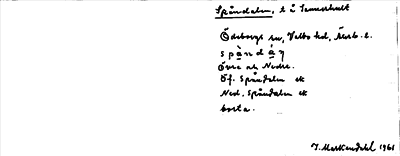 Spåndalen, t å Sannerhult
Ödeborgs sn, Valbo hd, Älvsb. l.
spåndáη
Övre och Nedre.
Öf. Spåndalen ek
Ned. Spåndalen ek
borta.
J. Markendahl 1961